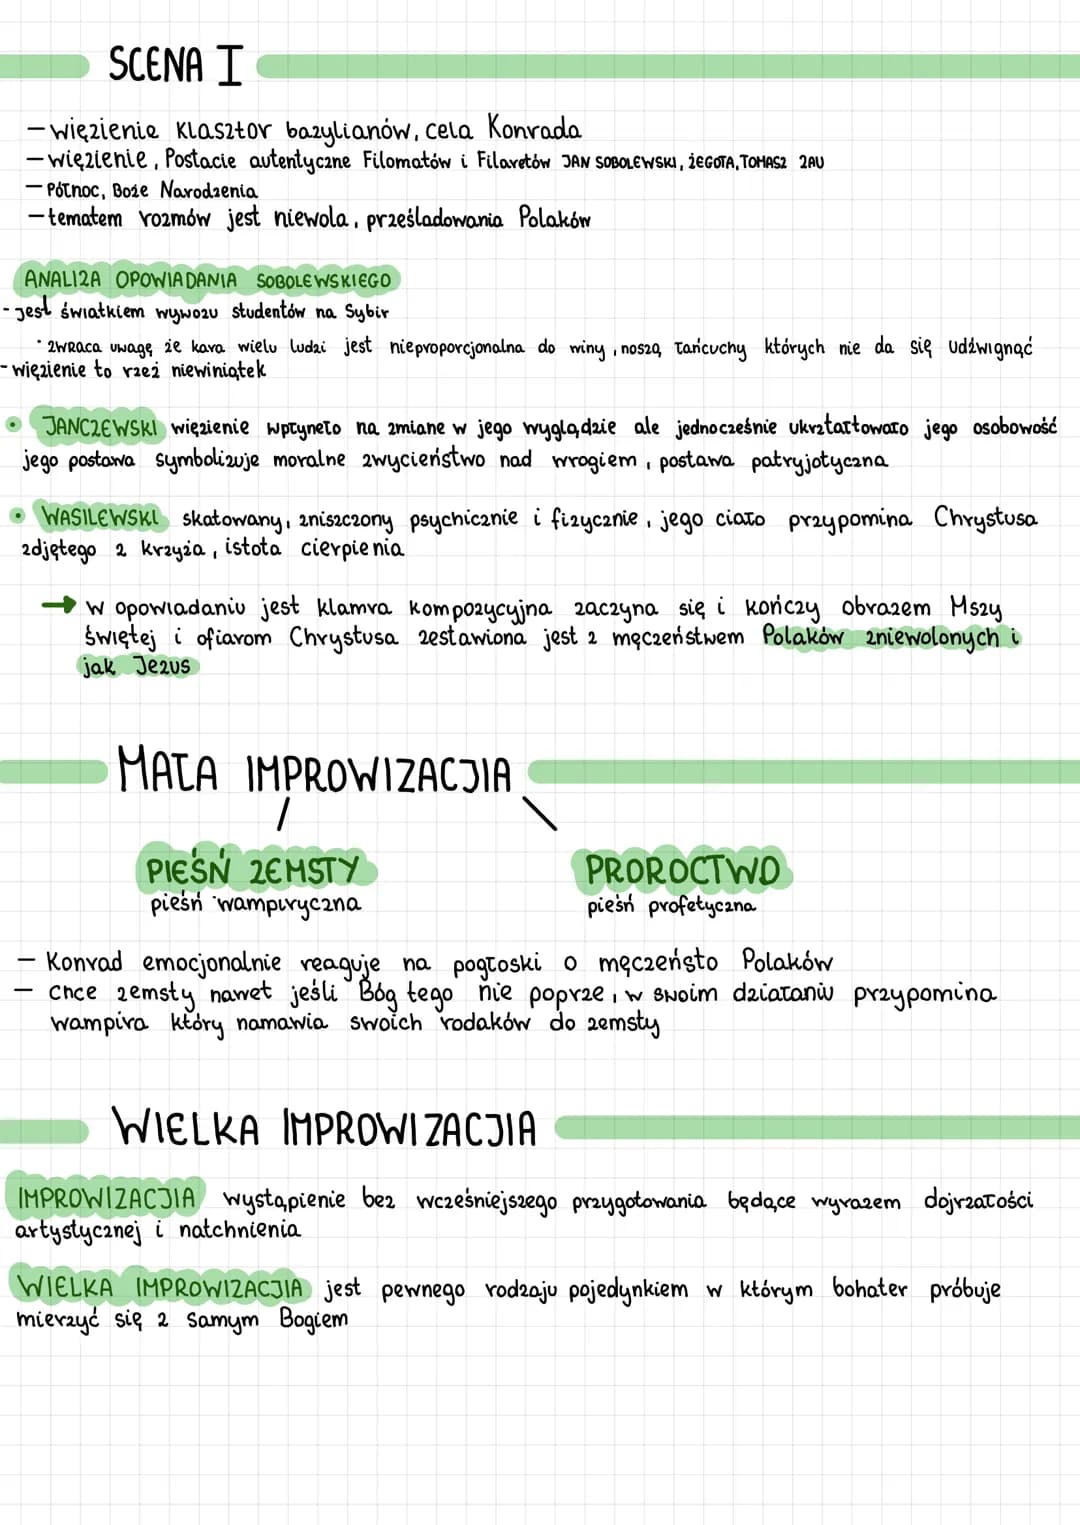 SCENA I
- więzienie klasztor bazylianów, cela Konrada
- więzienie, Postacie autentyczne Filomatów i Filaretów JAN SOBOLEWSKI, ŻEGOTA, TOMASZ ZAU
- Północ, Boże Narodzenia
- tematem rozmów jest niewola, prześladowania Polaków
ANALIZA OPOWIADANIA SOBOLEWSKIEGO
- jest świadkiem wywozu studentów na Sybir
• ZWRACA UWAGĘ że kara wielu ludzi jest nieproporcjonalna do winy, noszą łańcuchy których nie da się udźwignąć
- więzienie to rzeź niewiniątek
• JANCZEWSKI więzienie wpłyneło na zmiane w jego wyglądzie ale jednocześnie ukształtowało jego osobowość
jego postawa symbolizuje moralne zwycieństwo nad wrogiem, postawa patryjotyczna
• WASILEWSKI skatowany, zniszczony psychicznie i fizycznie, jego ciało przypomina Chrystusa
zdjętego z krzyża, istota cierpienia
→ W opowiadaniu jest klamra kompozycyjna zaczyna się i kończy obrazem Mszy
świętej i ofiarom Chrystusa zestawiona jest z męczeństwem Polaków zniewolonych i
jak Jezus
MAŁA IMPROWIZACJIA
PIEŚŃ ZEMSTY PROROCTWO
pieśń wampiryczna pieśń profetyczna
- Konrad emocjonalnie reaguje na pogłoski o męczeństo Polaków
- chce zemsty nawet jeśli Bóg tego nie poprze, w swoim działaniu przypomina
wampira który namawia swoich rodaków do zemsty
WIELKA IMPROWIZACJIA
IMPROWIZACJIA wystąpienie bez wcześniejszego przygotowania będące wyrazem dojrzałości
artystycznej i natchnienia
WIELKA IMPROWIZACJIA jest pewnego rodzaju pojedynkiem w którym bohater próbuje
mierzyć się z samym Bogiem